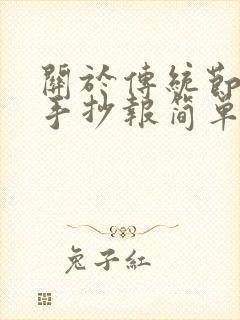 關於傳統節
手抄報简單
兔子紅